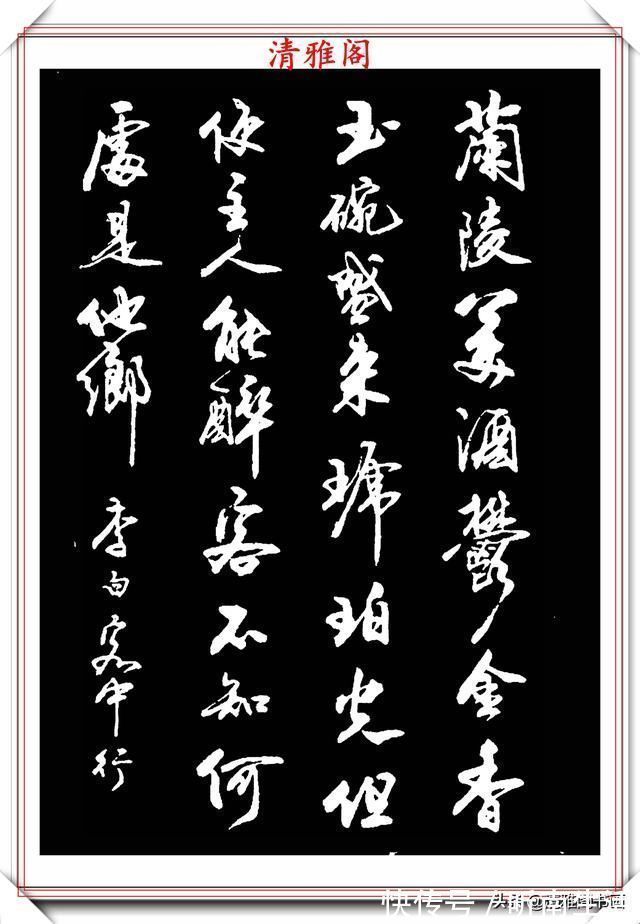 清雅阁
蘭陵美酒鬱金香
玉碗盛来琥珀光但
使主人能醉客不知何
處是他鄉
李白客中行
快传号
头条@清雅阁书画